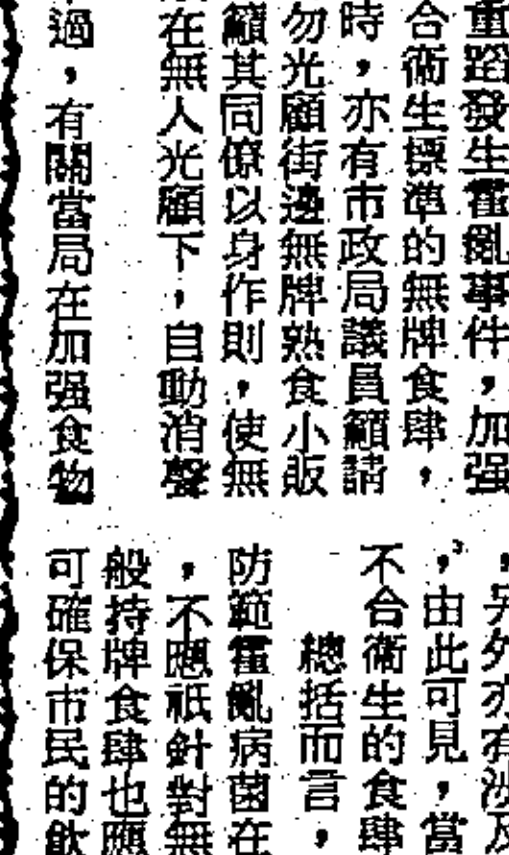 重蹈發生霍亂事件，加强
合衞生標準的無牌食肆，
時，亦有市政局議員籲請
勿光顧街邊無牌熟食小販
籲其同僚以身作則，使無
在無人光顧下，自動消聲
過，有關當局在加强食物
，另外亦有涉及
，由此可見，當
不合衞生的食肆
總括而言，
防範霍亂病菌在
，不應祇針對無
般持牌食肆也應
可確保市民的飲